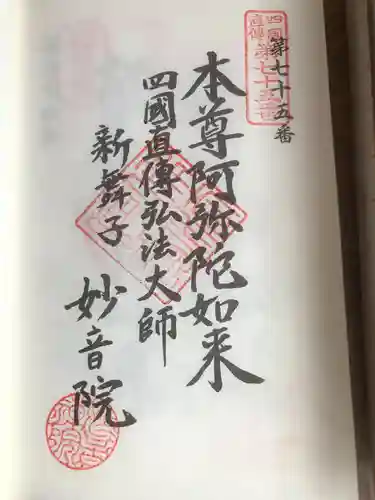 四国
直傳
第七十五番
第七十五番
本尊阿弥陀如来
四國直傳弘法大師
新舞子
妙音院